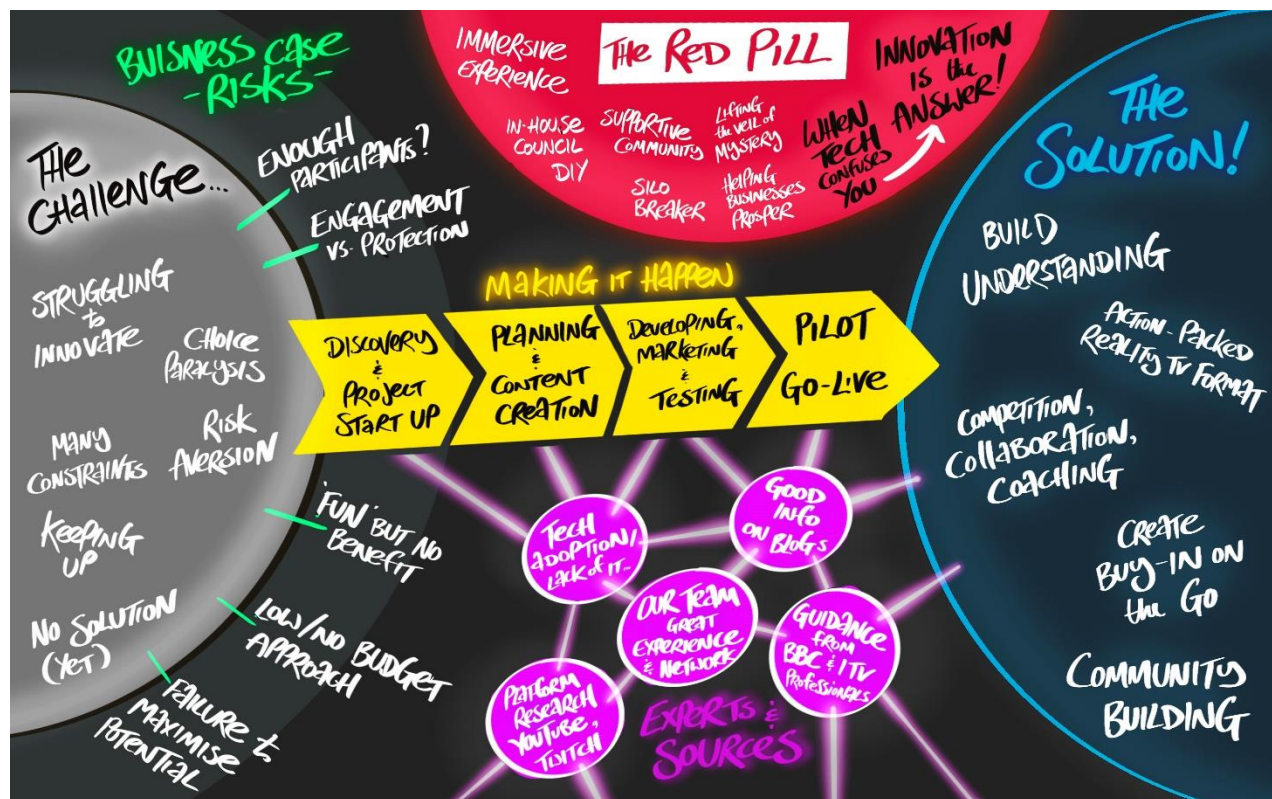 THE
CHALLENGE...
STRUGGLING
to
INNOVATE
CHOICE
PARALYSIS
MANY
CONSTRAINTS
RISK
AVERSION
KEEPING
UP
NO SOLUTION
(YET)
BUISNESS CASE
- RISKS -
ENOUGH
PARTICIPANTS?
ENGAGEMENT
VS. PROTECTION
'FUN' BUT NO
BENEFIT
LOW/NO BUDGET
APPROACH
FAILURE to
MAXIMISE
POTENTIAL
THE RED PILL
IMMERSIVE
EXPERIENCE
IN-HOUSE
COUNCIL
DIY
SUPPORTIVE
COMMUNITY
SILO
BREAKER
LIFTING
the VEIL of
MYSTERY
HELPING
BUSINESSES
PROSPER
WHEN
TECH
CONFUSES
YOU
INNOVATION
IS the
ANSWER!
MAKING IT HAPPEN
DISCOVERY
&
PROJECT
START UP
PLANNING
&
CONTENT
CREATION
DEVELOPING,
MARKETING
&
TESTING
PILOT
GO-LIVE
TECH
ADOPTION/
LACK of IT...
GOOD
INFO
ON BLOGS
OUR TEAM
GREAT
EXPERIENCE
& NETWORK
GUIDANCE
FROM
BBC & ITV
PROFESSIONALS
PLATFORM
RESEARCH
YOUTUBE,
TWITCH
EXPERTS &
SOURCES
THE
SOLUTION!
BUILD
UNDERSTANDING
ACTION-PACKED
REALITY TV FORMAT
COMPETITION,
COLLABORATION,
COACHING
CREATE
BUY-IN ON
the GO
COMMUNITY
BUILDING